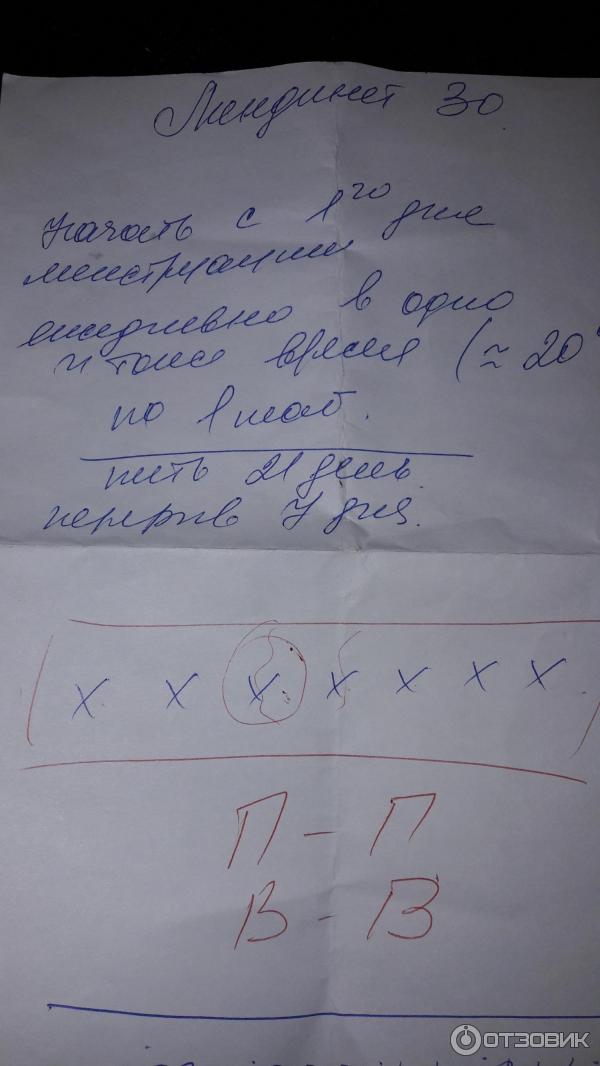 Линдинет 30
начать с 1го дня
менструации
ежедневно в одно
и тоже время (≈ 20
по 1 таб.
пить 21 день
перерыв 7 дня.
х х х х х х х
П - П
В - В
ОТЗОВИК